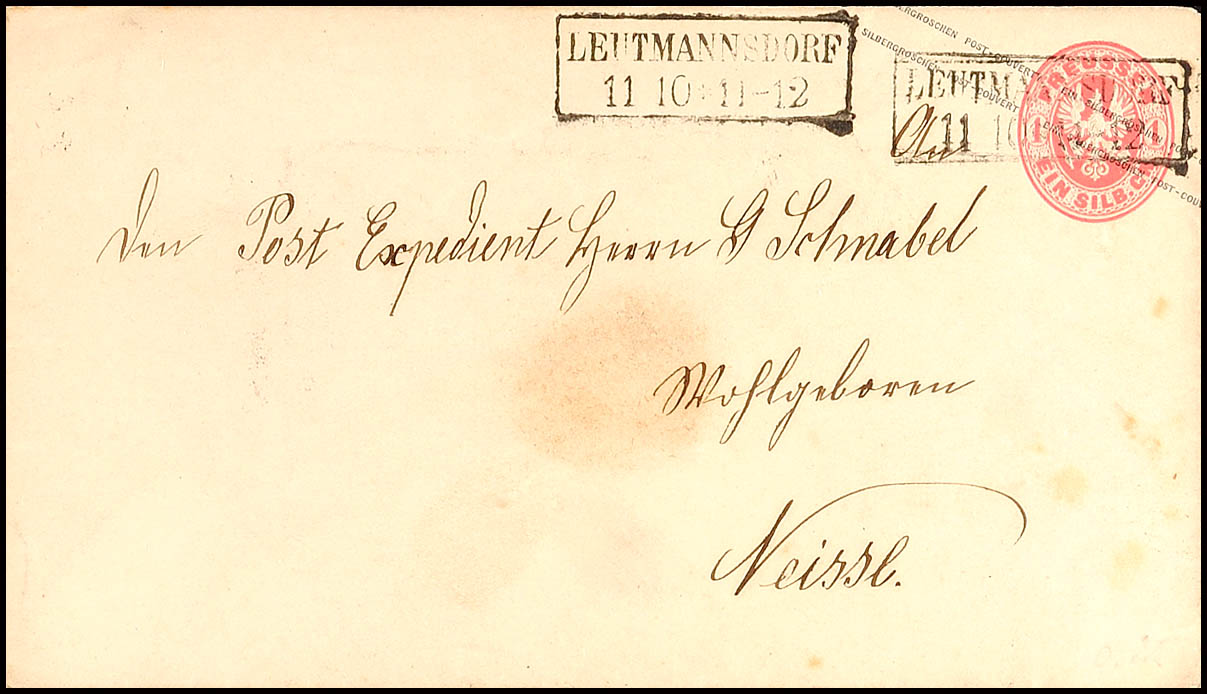 LEUTMANNSDORF
11 10 * 11-12
EIN SILBERGROSCHEN POST-COUVERT
LEUTMANNSDORF
11 10
PREUSSEN
1 1
EIN SILB. GR.
An
den Post Expedient Herrn G Schnabel
Wohlgeboren
Neisse.